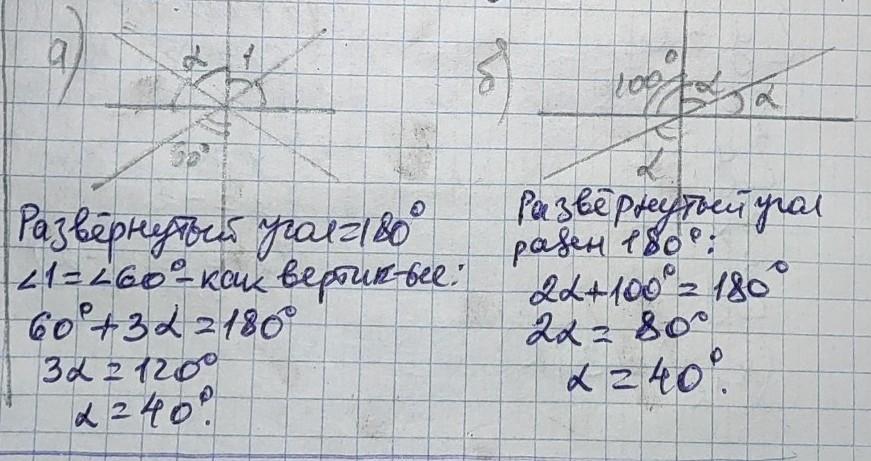 а)
α 1
60°
Развёрнутый угол=180°
∠1=∠60°-как вертик-ые:
60°+3α=180°
3α=120°
α=40°.
б)
100° α α
α
Развёрнутый угол
равен 180°:
2α+100°=180°
2α=80°
α=40°.